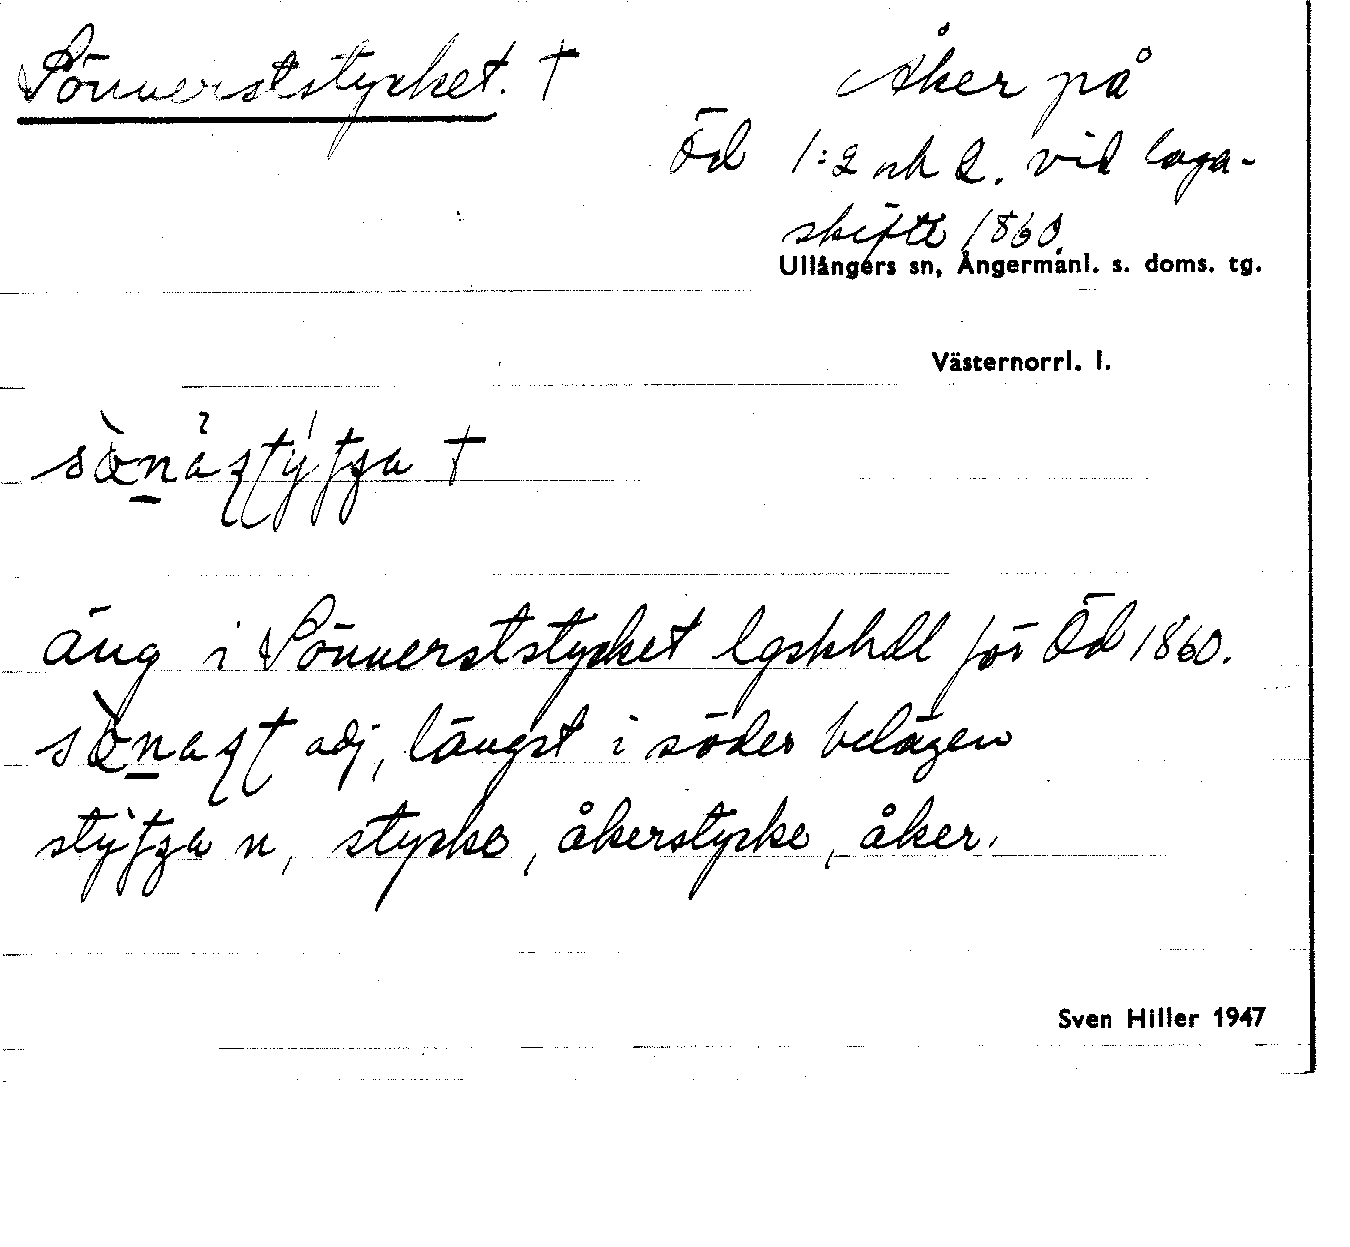 Sönnerststycket. † Åker på
Öd 1:2 och 2. vid laga-
skifte 1860.
Ullångers sn, Ångermanl. s. doms. tg.
Västernorrl. l.
äng i Sönnerststycket lgskhdl för Öd 1860.
adj, längst i söder belägen
n, stycke, åkerstycke, åker.
Sven Hiller 1947